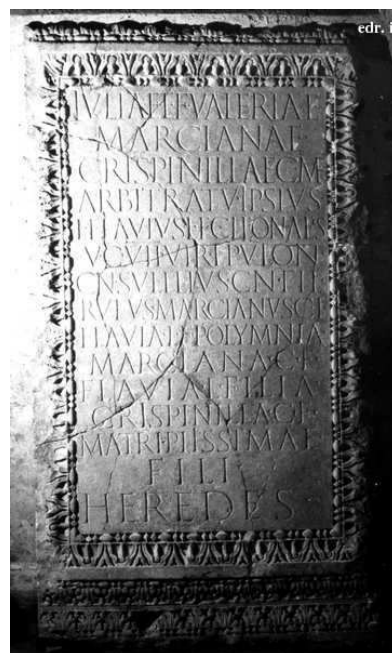 edr. i
IVLIAE L F VALERIAE
MARCIANAE
CRISPINILLAE C M
ARBITRATV IPSIVS
FLAVIVS L F
VIR EPVLON
CN SVELLIVS CN F
RVFVS MARCIANVS C
FLAVIA L F POLYMNIA
MARCIANA C F
FLAVIA L FILIA
CRISPINILLA C F
MATRI PIISSIMAE
FILI
HEREDES